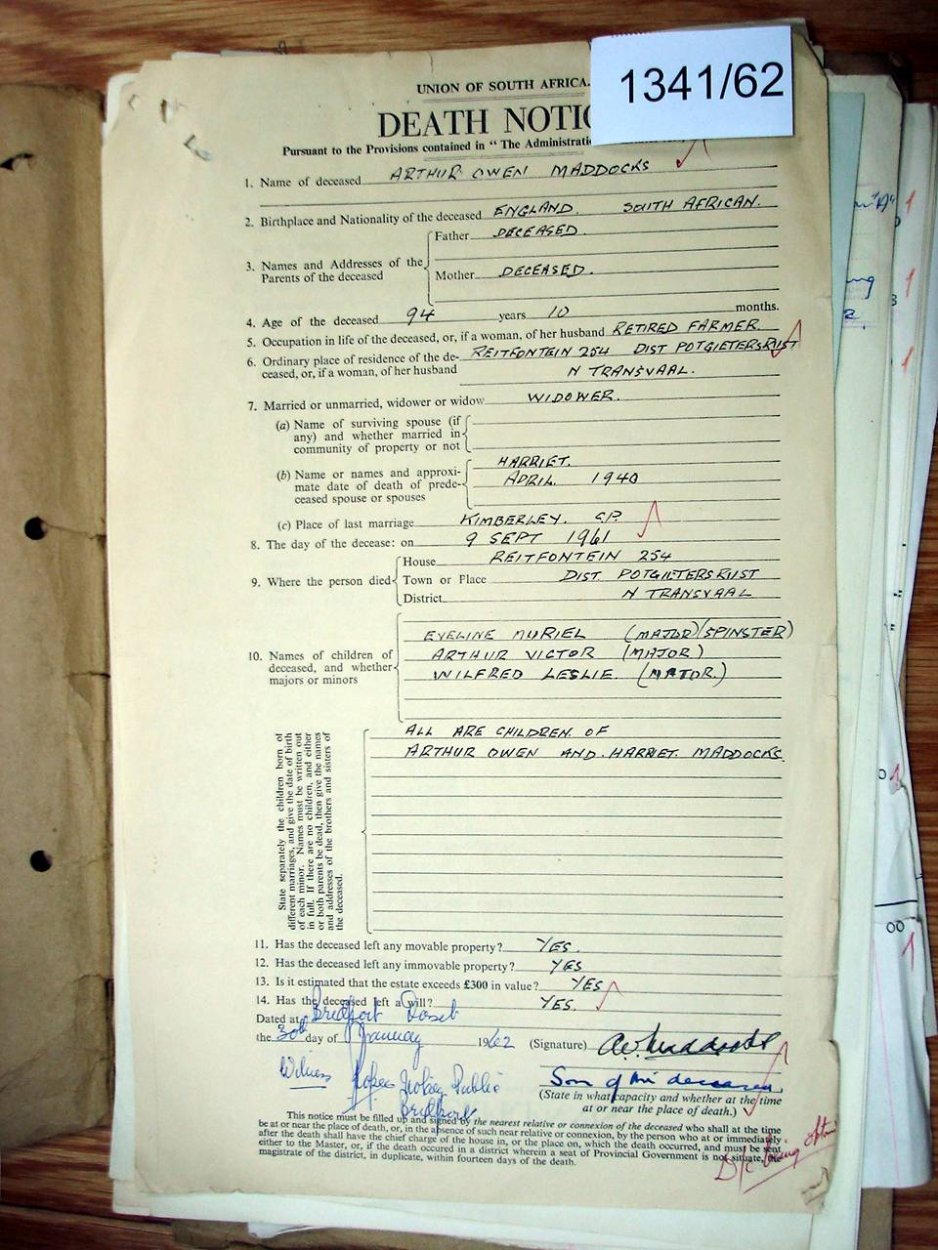 1341/62
UNION OF SOUTH AFRICA.
DEATH NOTIC
Pursuant to the Provisions contained in " The Administratio
1. Name of deceased ARTHUR OWEN MADDOCKS
2. Birthplace and Nationality of the deceased ENGLAND. SOUTH AFRICAN.
3. Names and Addresses of the Parents of the deceased
Father DECEASED.
Mother DECEASED.
4. Age of the deceased 94 years 10 months.
5. Occupation in life of the deceased, or, if a woman, of her husband RETIRED FARMER.
6. Ordinary place of residence of the de- REITFONTEIN 254 DIST POTGIETERSRUST
ceased, or, if a woman, of her husband N TRANSVAAL.
7. Married or unmarried, widower or widow WIDOWER.
(a) Name of surviving spouse (if
any) and whether married in
community of property or not
(b) Name or names and approxi- HARRIET.
mate date of death of prede- APRIL 1940
ceased spouse or spouses
(c) Place of last marriage KIMBERLEY. C.P.
8. The day of the decease: on 9 SEPT 1961
9. Where the person died
House REITFONTEIN 254
Town or Place DIST. POTGIETERSRUST
District N TRANSVAAL
10. Names of children of
deceased, and whether
majors or minors
EVELINE MURIEL (MAJOR)(SPINSTER)
ARTHUR VICTOR (MAJOR)
WILFRED LESLIE. (MAJOR.)
State separately the children born of
different marriages, and give the date of birth
of each minor. Names must be written out
in full. If there are no children, and either
or both parents be dead, then give the names
and addresses of the brothers and sisters of
the deceased.
ALL ARE CHILDREN OF
ARTHUR OWEN AND HARRIET MADDOCKS.
11. Has the deceased left any movable property? YES.
12. Has the deceased left any immovable property? YES
13. Is it estimated that the estate exceeds £300 in value? YES
14. Has the deceased left a will? YES.
Dated at Bridport Dorset
the 30th day of January 1962 (Signature) A.V. Maddocks
Son of the deceased.
(State in what capacity and whether at the time
at or near the place of death.)
Witness Notary Public
Bridport
This notice must be filled up and signed by the nearest relative or connexion of the deceased who shall at the time
be at or near the place of death, or, in the absence of such near relative or connexion, by the person who at or immediately
after the death shall have the chief charge of the house in, or the place on, which the death occurred, and must be sent
either to the Master, or, if the death occurred in a district wherein a seat of Provincial Government is not situate, the
magistrate of the district, in duplicate, within fourteen days of the death.
D/C being